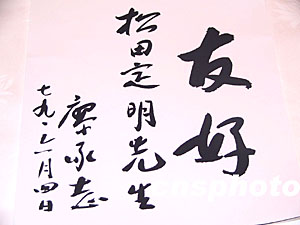 友好
松田定明先生
廖承志
七九 一月四日
cnsphoto